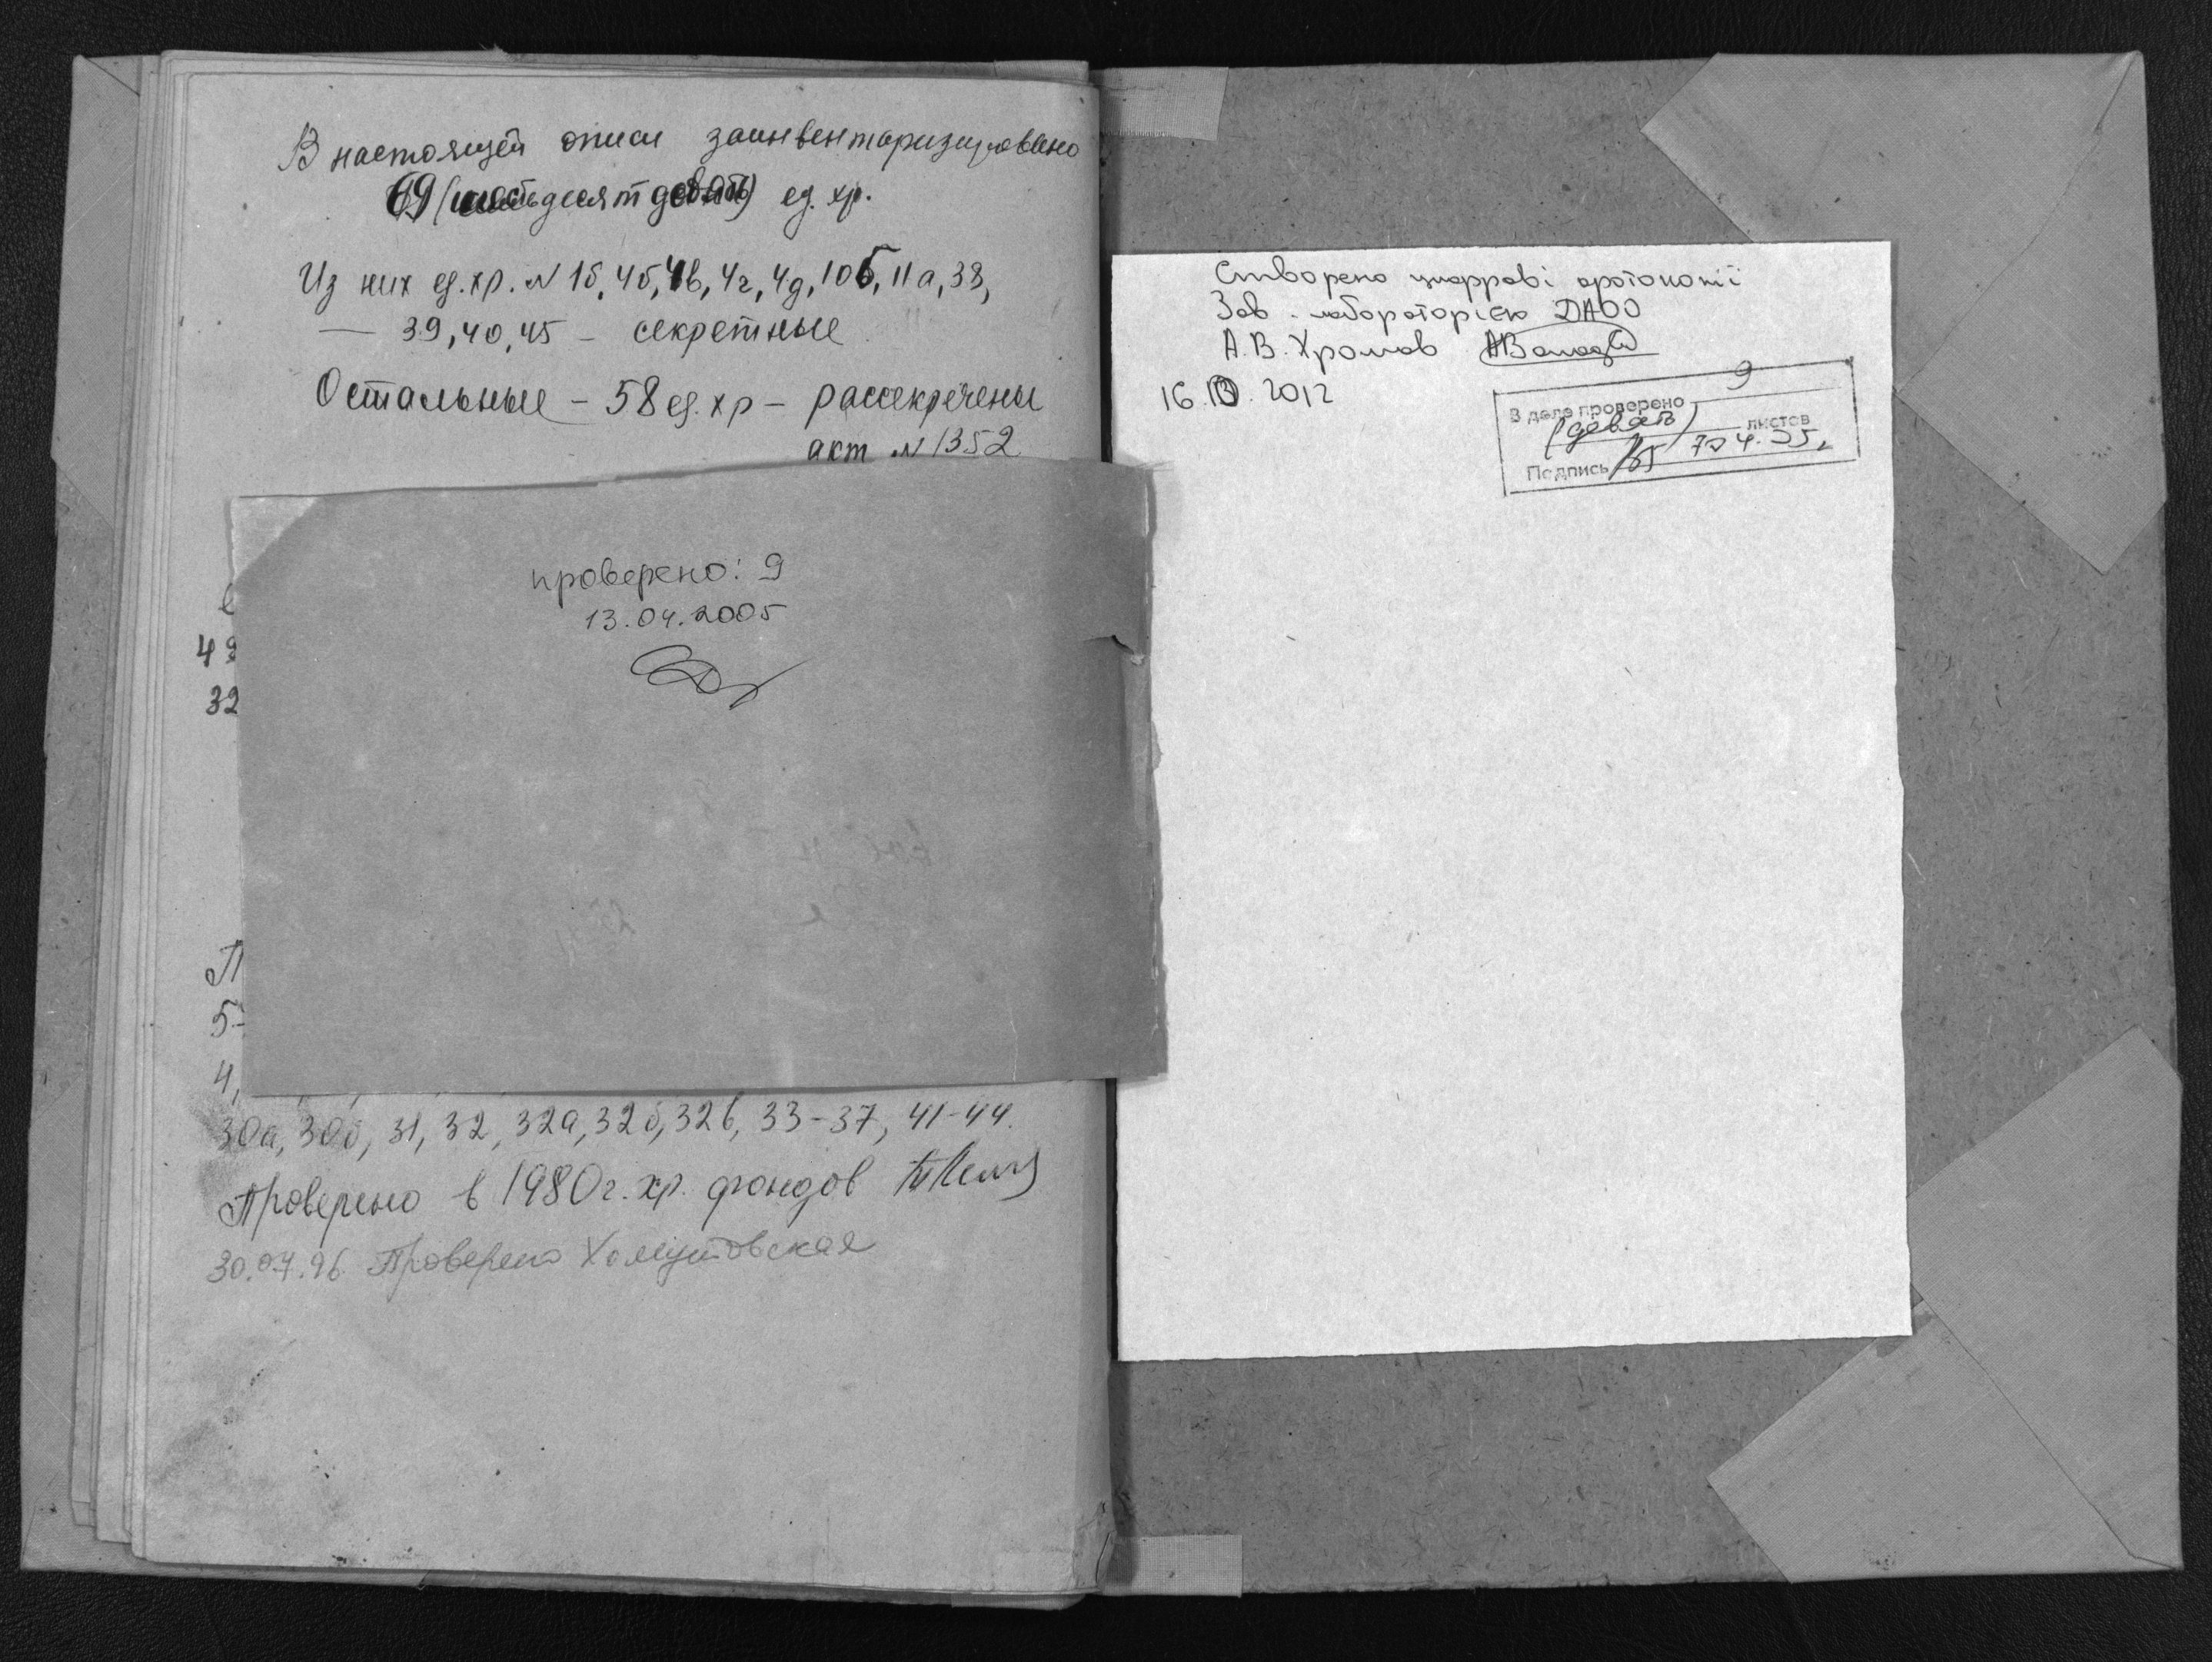 В настоящей описи заинвентаризировано
69 (шестьдесят девять) ед. хр.
Из них ед. хр. N 1б, 4б, 4в, 4г, 4д, 10б, 11а, 38,
— 39, 40, 45 – секретные
Остальные – 58 ед. хр – рассекречены
акт N 1352
проверено: 9
13.04.2005
49
32
П
5-
4,
30а, 30б, 31, 32, 32а, 32б, 32в, 33-37, 41-44.
Проверено в 1980г. хр. фондов
30.07.96. Проверено Хомутовская
Створено цифрові фотокопії
Зав. лабораторією ДАОО
А.В. Хромов
16. 2012
В деле проверено 9
(девять) листов
Подпись